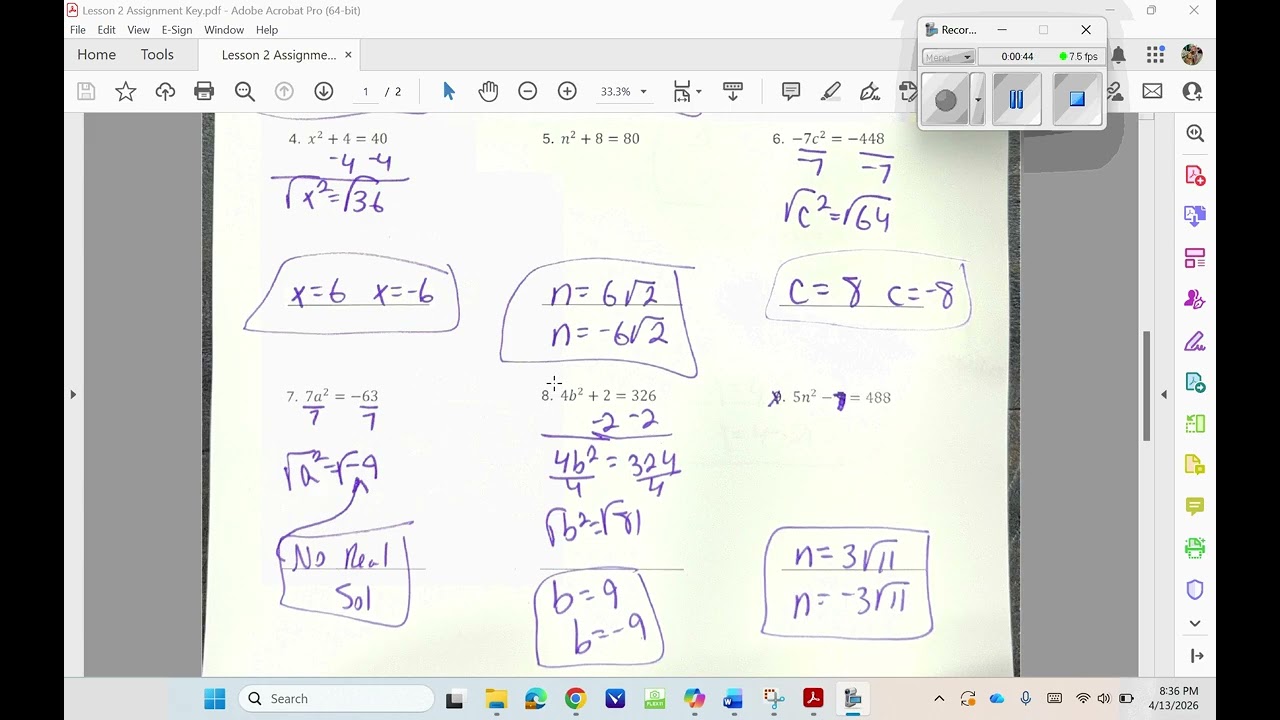 Lesson 2 Assignment Key.pdf - Adobe Acrobat Pro (64-bit)
File Edit View E-Sign Window Help
Home Tools Lesson 2 Assignme... ×
1 / 2
33.3%
Recor...
Menu 0:00:44 7.5 fps
4. x² + 4 = 40
-4 -4
√x² = √36
x = 6 x = -6
5. n² + 8 = 80
n = 6√2
n = -6√2
6. −7c² = −448
-7 -7
√c² = √64
c = 8 c = -8
7. 7a² = −63
7 7
√a² = √-9
No Real
Sol
8. 4b² + 2 = 326
-2 -2
4b² = 324
4 4
√b² = √81
b = 9
b = -9
9. 5n² − 7 = 488
n = 3√11
n = -3√11
Search
8:36 PM
4/13/2026